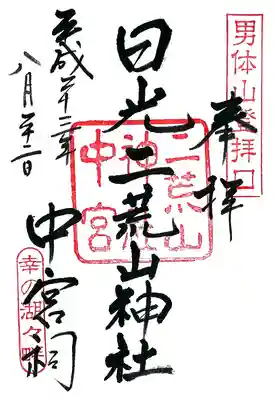 男体山登拝口
奉拝
日光二荒山神社
中宮祠
二荒山
神社
中宮
幸の湖々畔
平成廿三年
八月廿二日